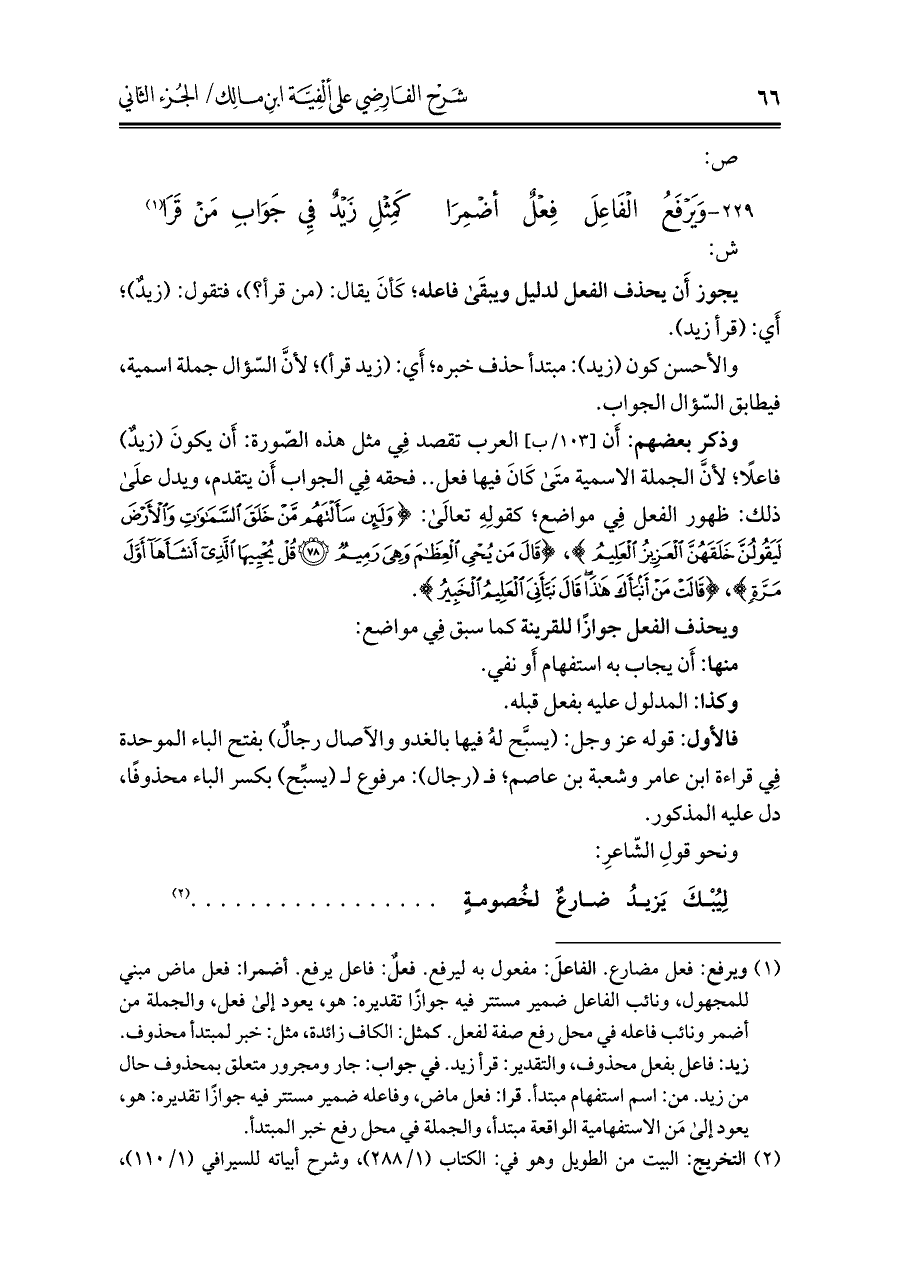 ٦٦ شَرْح الفَارِضِي على ألْفِيَّة ابنِ مالِك/ الجُزء الثاني
ص:
٢٢٩-وَيَرْفَعُ الْفَاعِلَ فِعْلٌ أضْمِرَا كَمِثْلِ زَيْدٌ فِي جَوَابِ مَنْ قَرَا(١)
ش:
يجوز أَن يحذف الفعل لدليل ويبقَىٰ فاعله؛ كَأنَ يقال: (من قرأ؟)، فتقول: (زيدٌ)؛
أَي: (قرأ زيد).
والأحسن كون (زيد): مبتدأ حذف خبره؛ أَي: (زيد قرأ)؛ لأنَّ السّؤال جملة اسمية،
فيطابق السّؤال الجواب.
وذكر بعضهم: أَن [١٠٣/ب] العرب تقصد فِي مثل هذه الصّورة: أَن يكونَ (زيدٌ)
فاعلًا؛ لأنَّ الجملة الاسمية متىٰ كَانَ فيها فعل.. فحقه فِي الجواب أَن يتقدم، ويدل علَىٰ
ذلك: ظهور الفعل فِي مواضع؛ كقولِهِ تعالَىٰ: ﴿وَلَئِن سَأَلْنَهُم مَّنْ خَلَقَ ٱلسَّمَٰوَٰتِ وَٱلْأَرْضَ
لَيَقُولُنَّ خَلَقَهُنَّ ٱلْعَزِيزُ ٱلْعَلِيمُ ﴾، ﴿قَالَ مَن يُحْيِ ٱلْعِظَٰمَ وَهِىَ رَمِيمٌ ﴿٧٨﴾ قُلْ يُحْيِيهَا ٱلَّذِىٓ أَنشَأَهَآ أَوَّلَ
مَرَّةٍ﴾، ﴿قَالَتْ مَنْ أَنۢبَأَكَ هَٰذَا قَالَ نَبَّأَنِىَ ٱلْعَلِيمُ ٱلْخَبِيرُ ﴾.
ويحذف الفعل جوازًا للقرينة كما سبق فِي مواضع:
منها: أَن يجاب به استفهام أَو نفي.
وكذا: المدلول عليه بفعل قبله.
فالأول: قوله عز وجل: (يسبَّح لهُ فيها بالغدو والآصال رجالٌ) بفتح الباء الموحدة
فِي قراءة ابن عامر وشعبة بن عاصم؛ فـ (رجال): مرفوع لـ (يسبِّح) بكسر الباء محذوفًا،
دل عليه المذكور.
ونحو قولِ الشّاعرِ:
لِيُبْكَ يَزيدُ ضارعٌ لخُصومةٍ . . . . . . . . . . . . . . . . .(٢)
(١) ويرفع: فعل مضارع. الفاعلَ: مفعول به ليرفع. فعلٌ: فاعل يرفع. أضمرا: فعل ماض مبني
للمجهول، ونائب الفاعل ضمير مستتر فيه جوازًا تقديره: هو، يعود إلىٰ فعل، والجملة من
أضمر ونائب فاعله في محل رفع صفة لفعل. كمثل: الكاف زائدة، مثل: خبر لمبتدأ محذوف.
زيد: فاعل بفعل محذوف، والتقدير: قرأ زيد. في جواب: جار ومجرور متعلق بمحذوف حال
من زيد. من: اسم استفهام مبتدأ. قرا: فعل ماض، وفاعله ضمير مستتر فيه جوازًا تقديره: هو،
يعود إلىٰ مَن الاستفهامية الواقعة مبتدأ، والجملة في محل رفع خبر المبتدأ.
(٢) التخريج: البيت من الطويل وهو في: الكتاب (٢٨٨/١)، وشرح أبياته للسيرافي (١١٠/١)،